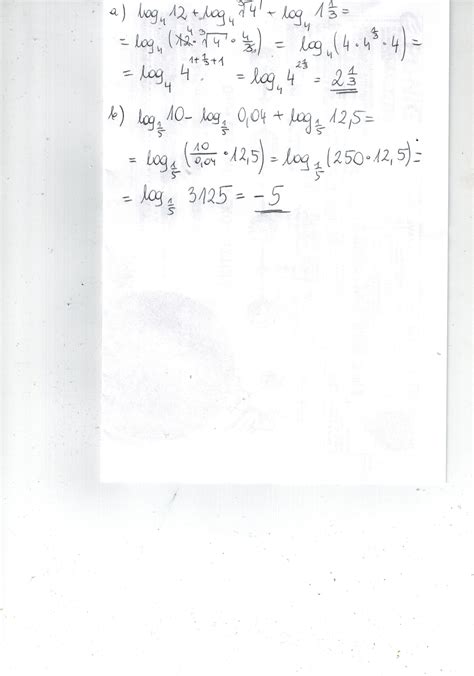 a) log₄ 12 + log₄ ∛4 + log₄ 1 1/3 =
= log₄ (12 · ∛4 · 4/3) = log₄ (4 · 4^(1/3) · 4) =
= log₄ 4^(1+1/3+1) = log₄ 4^(2 1/3) = 2 1/3
b) log_(1/5) 10 - log_(1/5) 0,04 + log_(1/5) 12,5 =
= log_(1/5) (10/0,04 · 12,5) = log_(1/5) (250 · 12,5) =
= log_(1/5) 3125 = -5